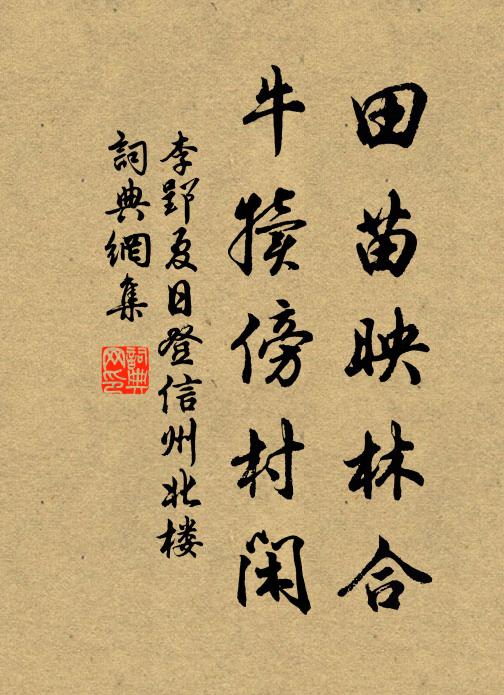 田苗映林合
牛犢傍村閑
李郢夏日登信州北楼
詞典網集
詞典网印